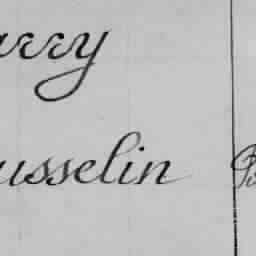 arry
usselin